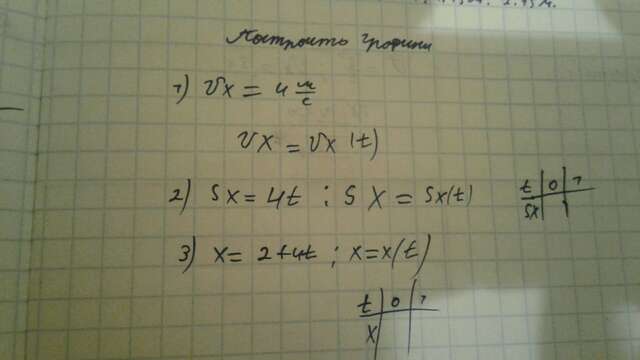 Построить графики
1) υx = 4 м/с
υx = υx (t)
2) Sx = 4t ; Sx = Sx(t)
t | 0 | 1
Sx
3) x = 2+4t ; x = x(t)
t | 0 | 1
x